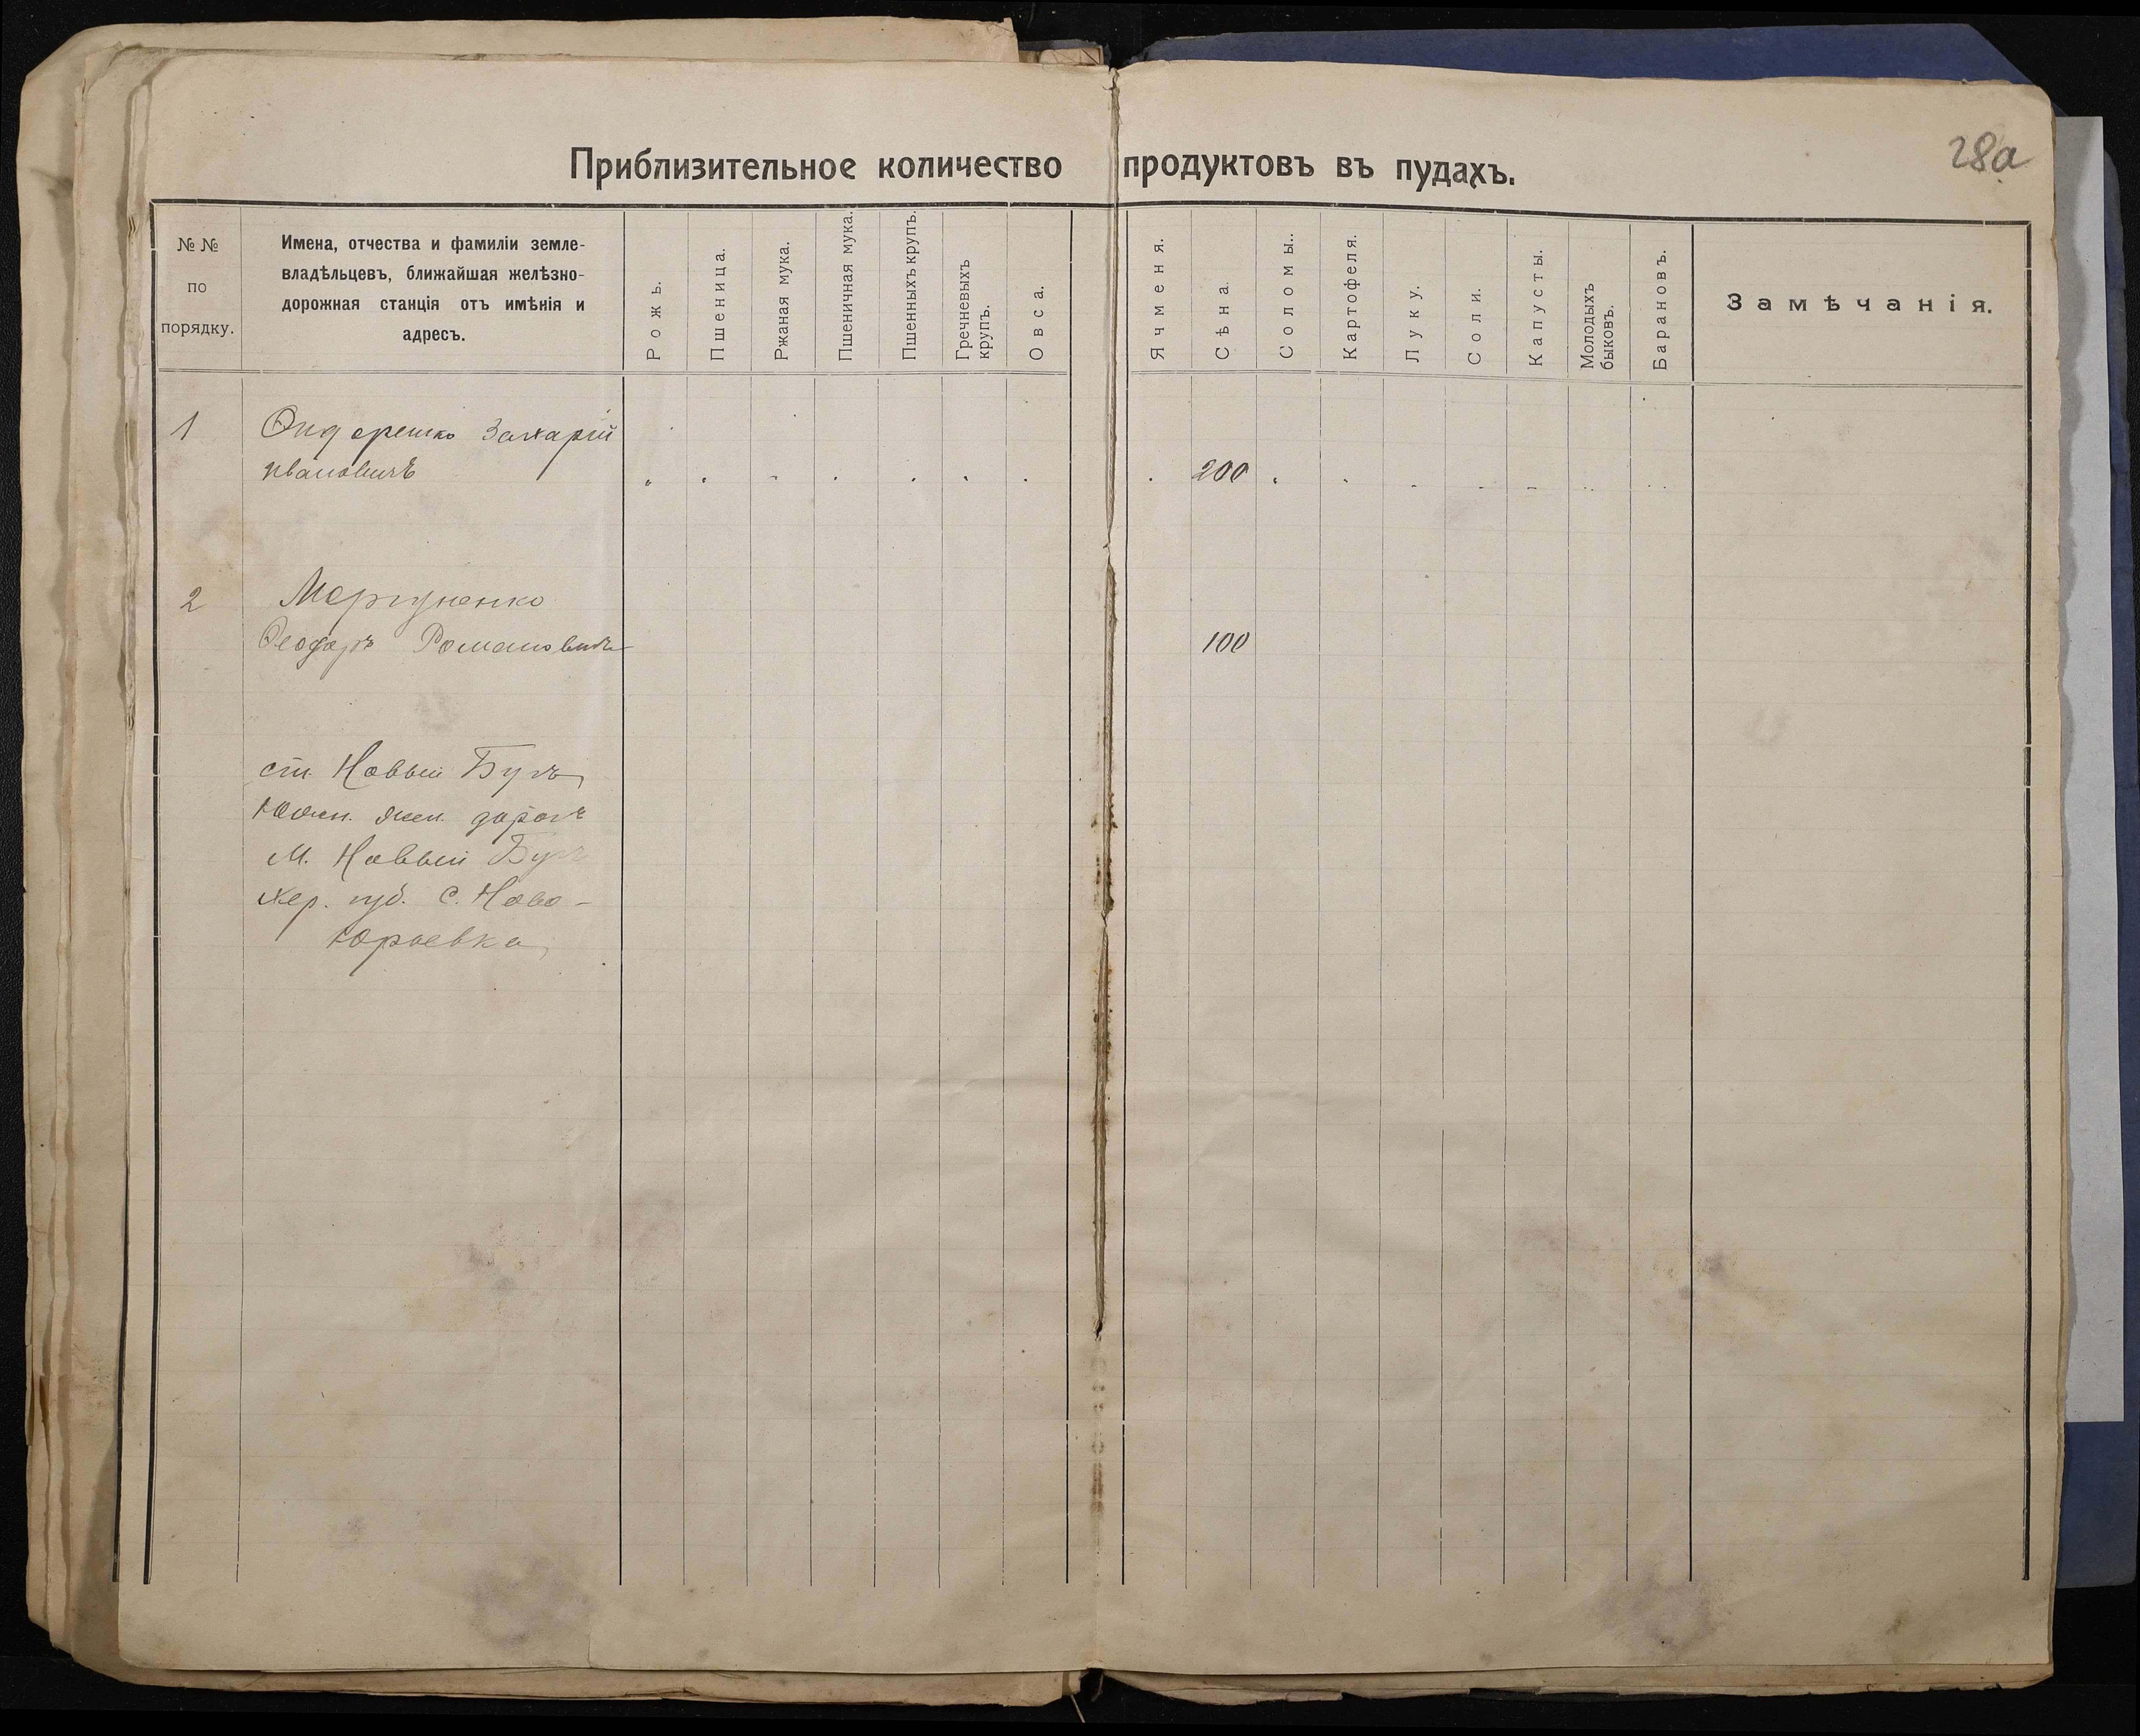 28а
Приблизительное количество продуктовъ въ пудахъ.
№ №
по
порядку.
Имена, отчества и фамиліи земле-
владѣльцевъ, ближайшая желѣзно-
дорожная станція отъ имѣнія и
адресъ.
Рожь.
Пшеница.
Ржаная мука.
Пшеничная мука.
Пшенныхъ крупъ.
Гречневыхъ
крупъ.
Овса.
Ячменя.
Сѣна
Соломы.
Картофеля.
Луку.
Соли.
Капусты.
Молодыхъ
быковъ.
Барановъ.
Замѣчанія.
1 Захарій
Ивановичъ 200
2
Феодоръ Романовичъ 100
ст. Новый Бугъ,
Южн. жел. дорогъ
М. Новый Бугъ
Хер. губ. С. Ново-
Юрьевка,